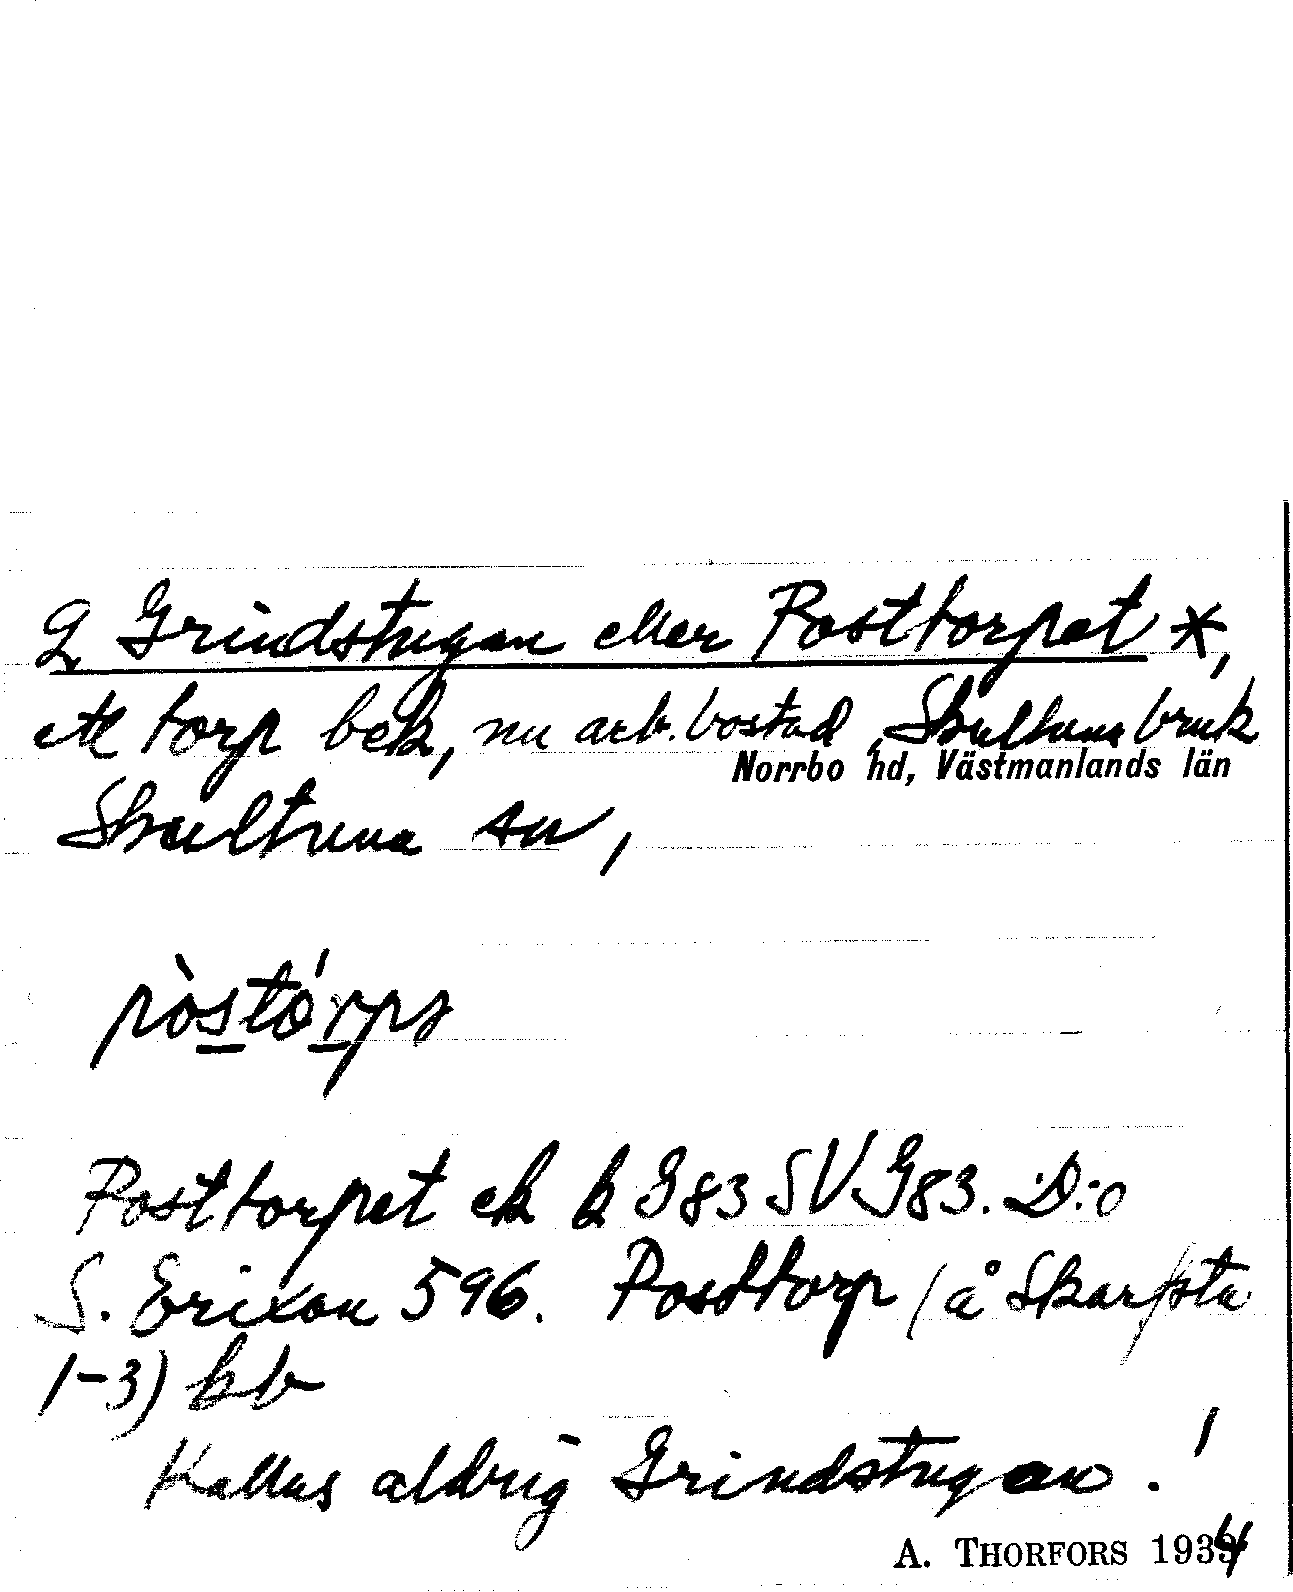 Grindstugan eller Posttorpet *,
ett torp bek, nu arb. bostad, Skultuna bruk
Norrbo hd, Västmanlands län
Skultuna sn,
pòstó́rps
Posttorpet ek k G83 SV G83. D:o
S. Erixon 596. Posttorp (å Skarpsta
1-3) kb
Kallas aldrig Grindstugan.!
A. THORFORS 1934